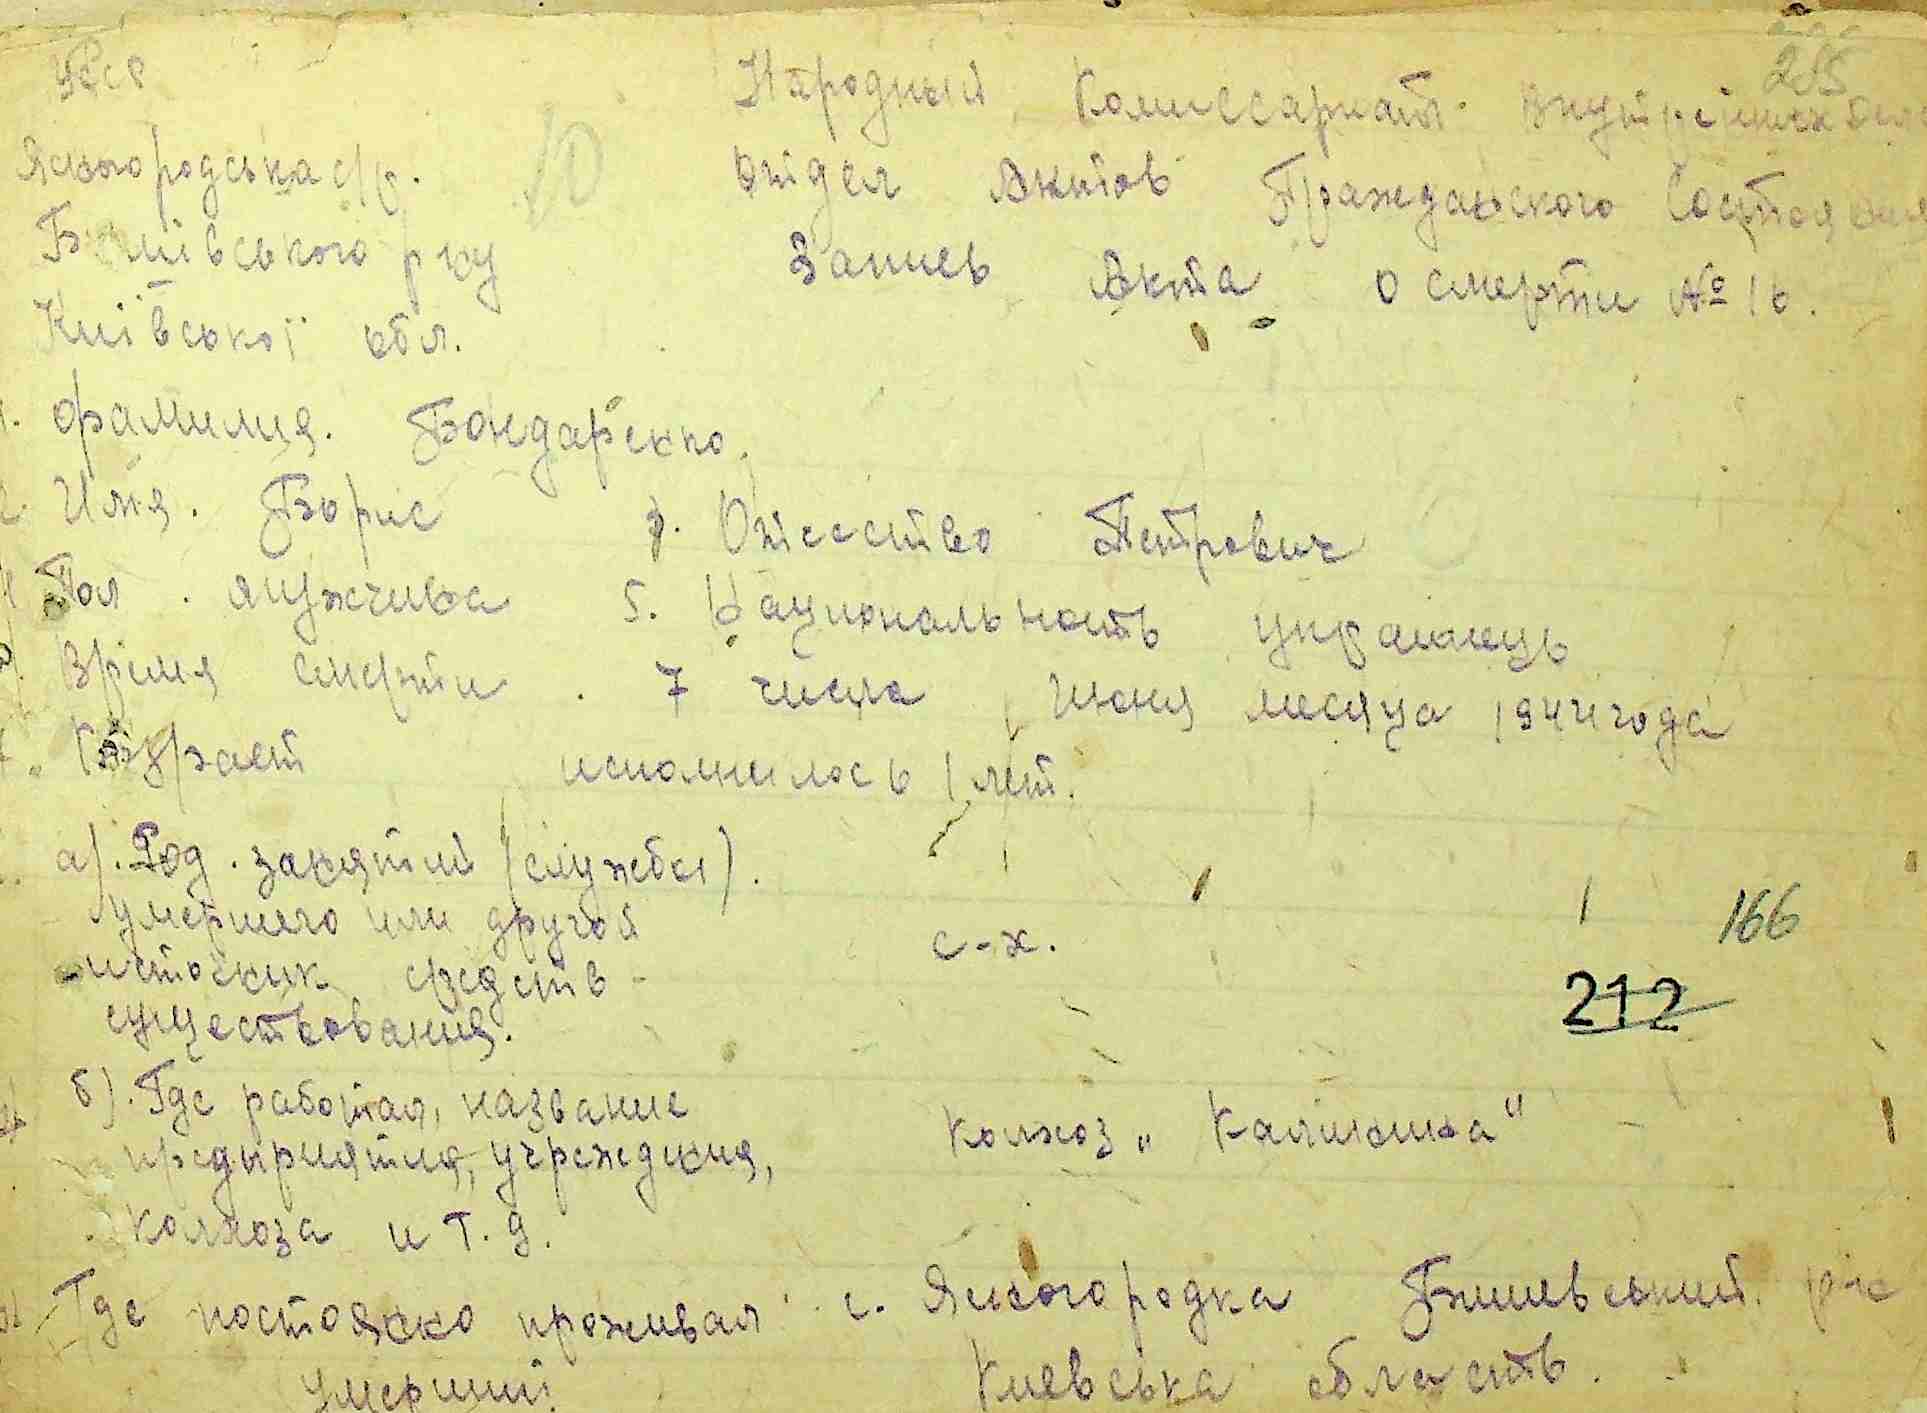 УССР
Ясногородська с/р.
Бишівського р-ну
Київської обл.
295
Народный Комиссариат Внутренних Дел
Отдел Актов Гражданского Состояния
Запись Акта о смерти № 16.
1. Фамилия. Бондаренко.
2. Имя. Борис 3. Отчество Петрович
4. Пол. мужчина 5. Национальность украинець
Время смерти. 7 числа июня месяца 1944 года
7. Возраст исполнилось 1 лет.
а). Род. занятий (службы).
умершего или другой
источник средств с-х.
существования.
166
212
б). Где работал, название
предприятия, учреждения, колхоз „Калинина"
колхоза и т. д.
Где постоянно проживал с. Ясногородка Бишевський р-н
умерший Киевська область.